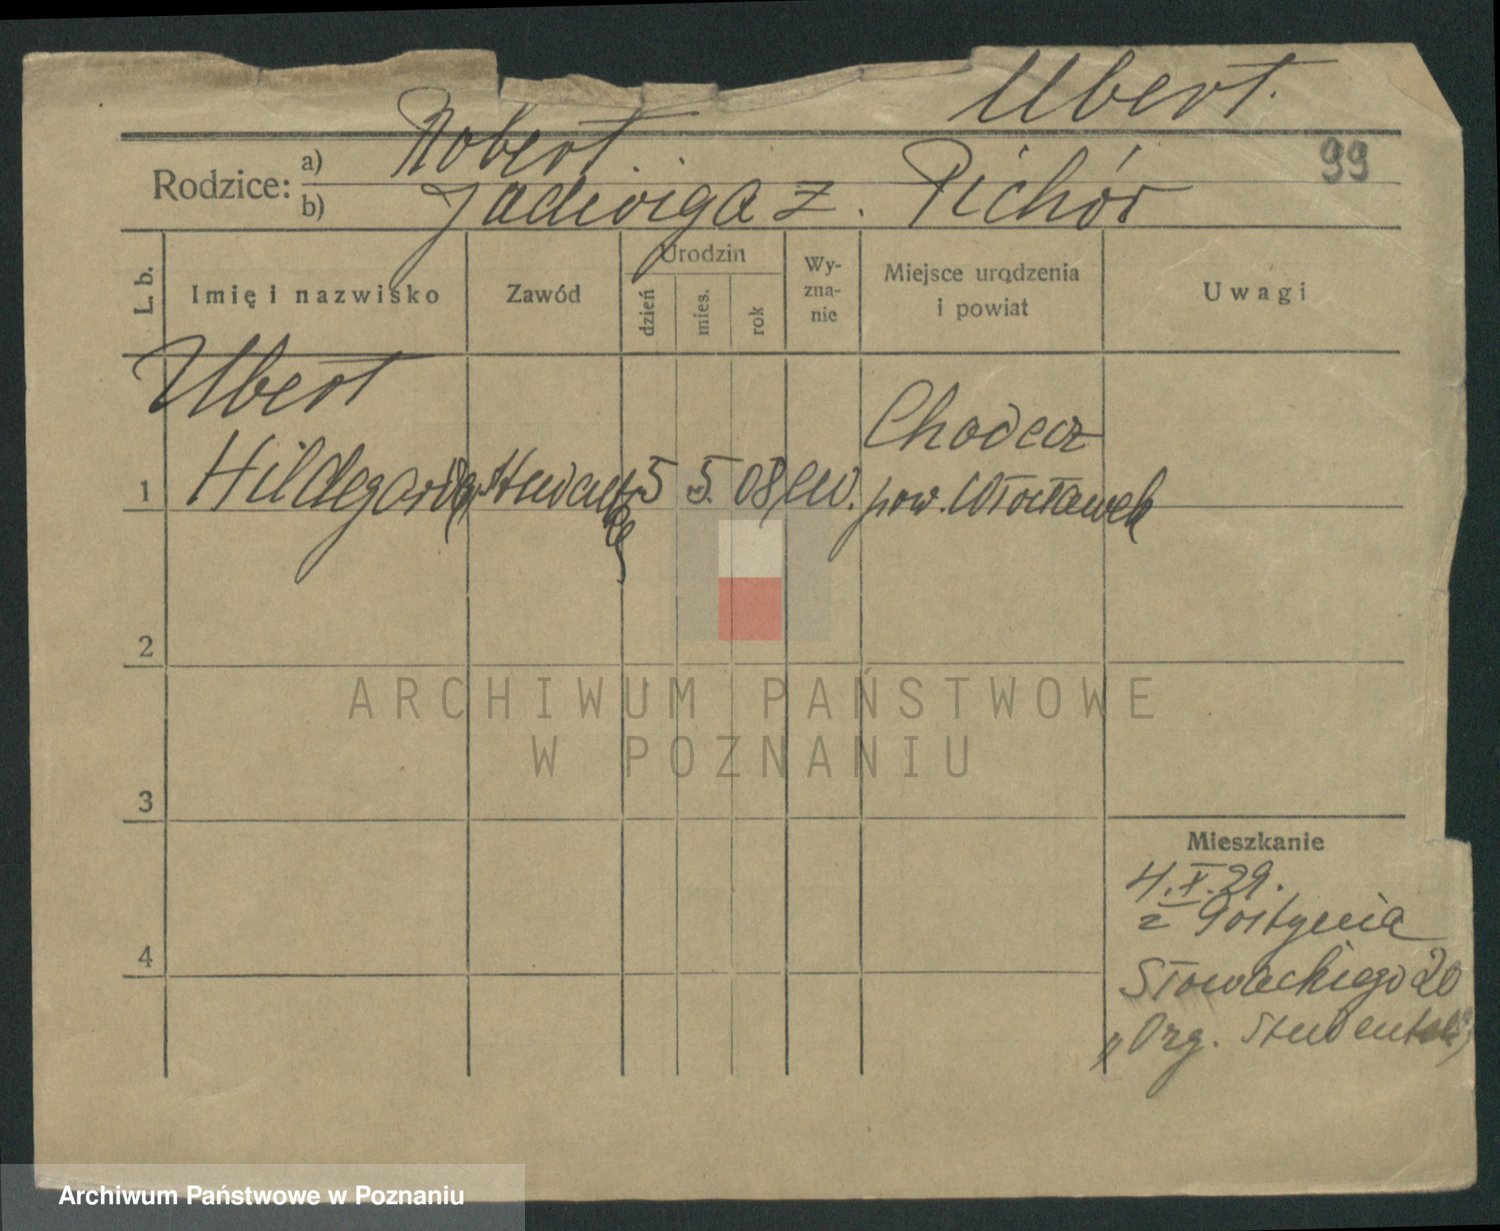 Ubert.
99
Rodzice:
a) Robert
b) Jadwiga z. Pichór
L. b.
Imię i nazwisko
Zawód
Urodzin
dzień
mies.
rok
Wy-
zna-
nie
Miejsce urodzenia
i powiat
Uwagi
Ubert
Hildegarda
1
5 5. 08
Chodecz
pow. Włocławek
2
ARCHIWUM PAŃSTWOWE
W POZNANIU
3
Mieszkanie
4.X.29.
z Gostynia
4
Słowackiego 20
"Org.
Archiwum Państwowe w Poznaniu